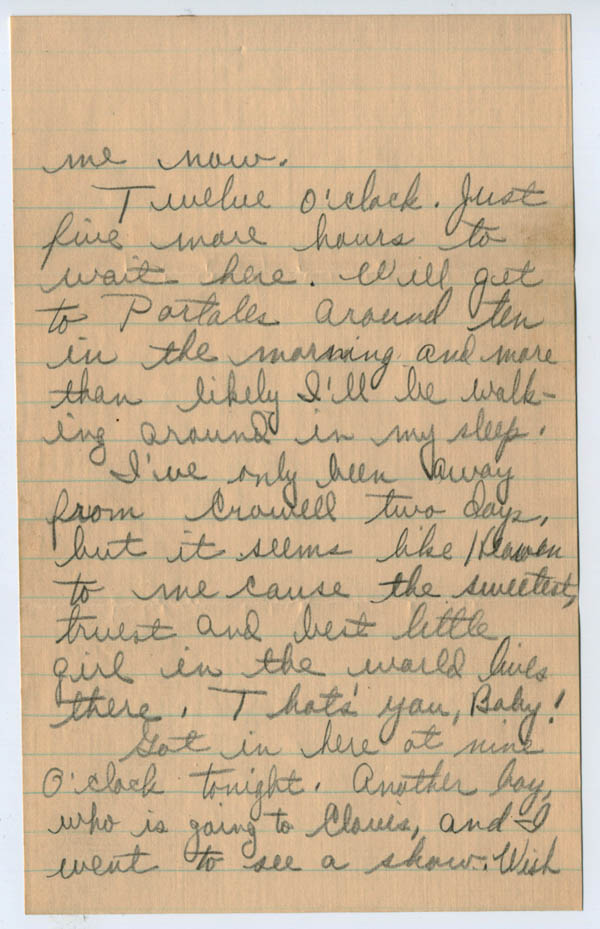 me now.
Twelve o'clock. Just
five more hours to
wait here. Will get
to Portales around ten
in the morning and more
than likely I'll be walk-
ing around in my sleep.
I've only been away
from Crowell two days,
but it seems like Heaven
to me cause the sweetest,
truest and best little
girl in the world lives
there. That's you, Baby!
Got in here at nine
O'clock tonight. Another boy,
who is going to Clovis, and I
went to see a show. Wish